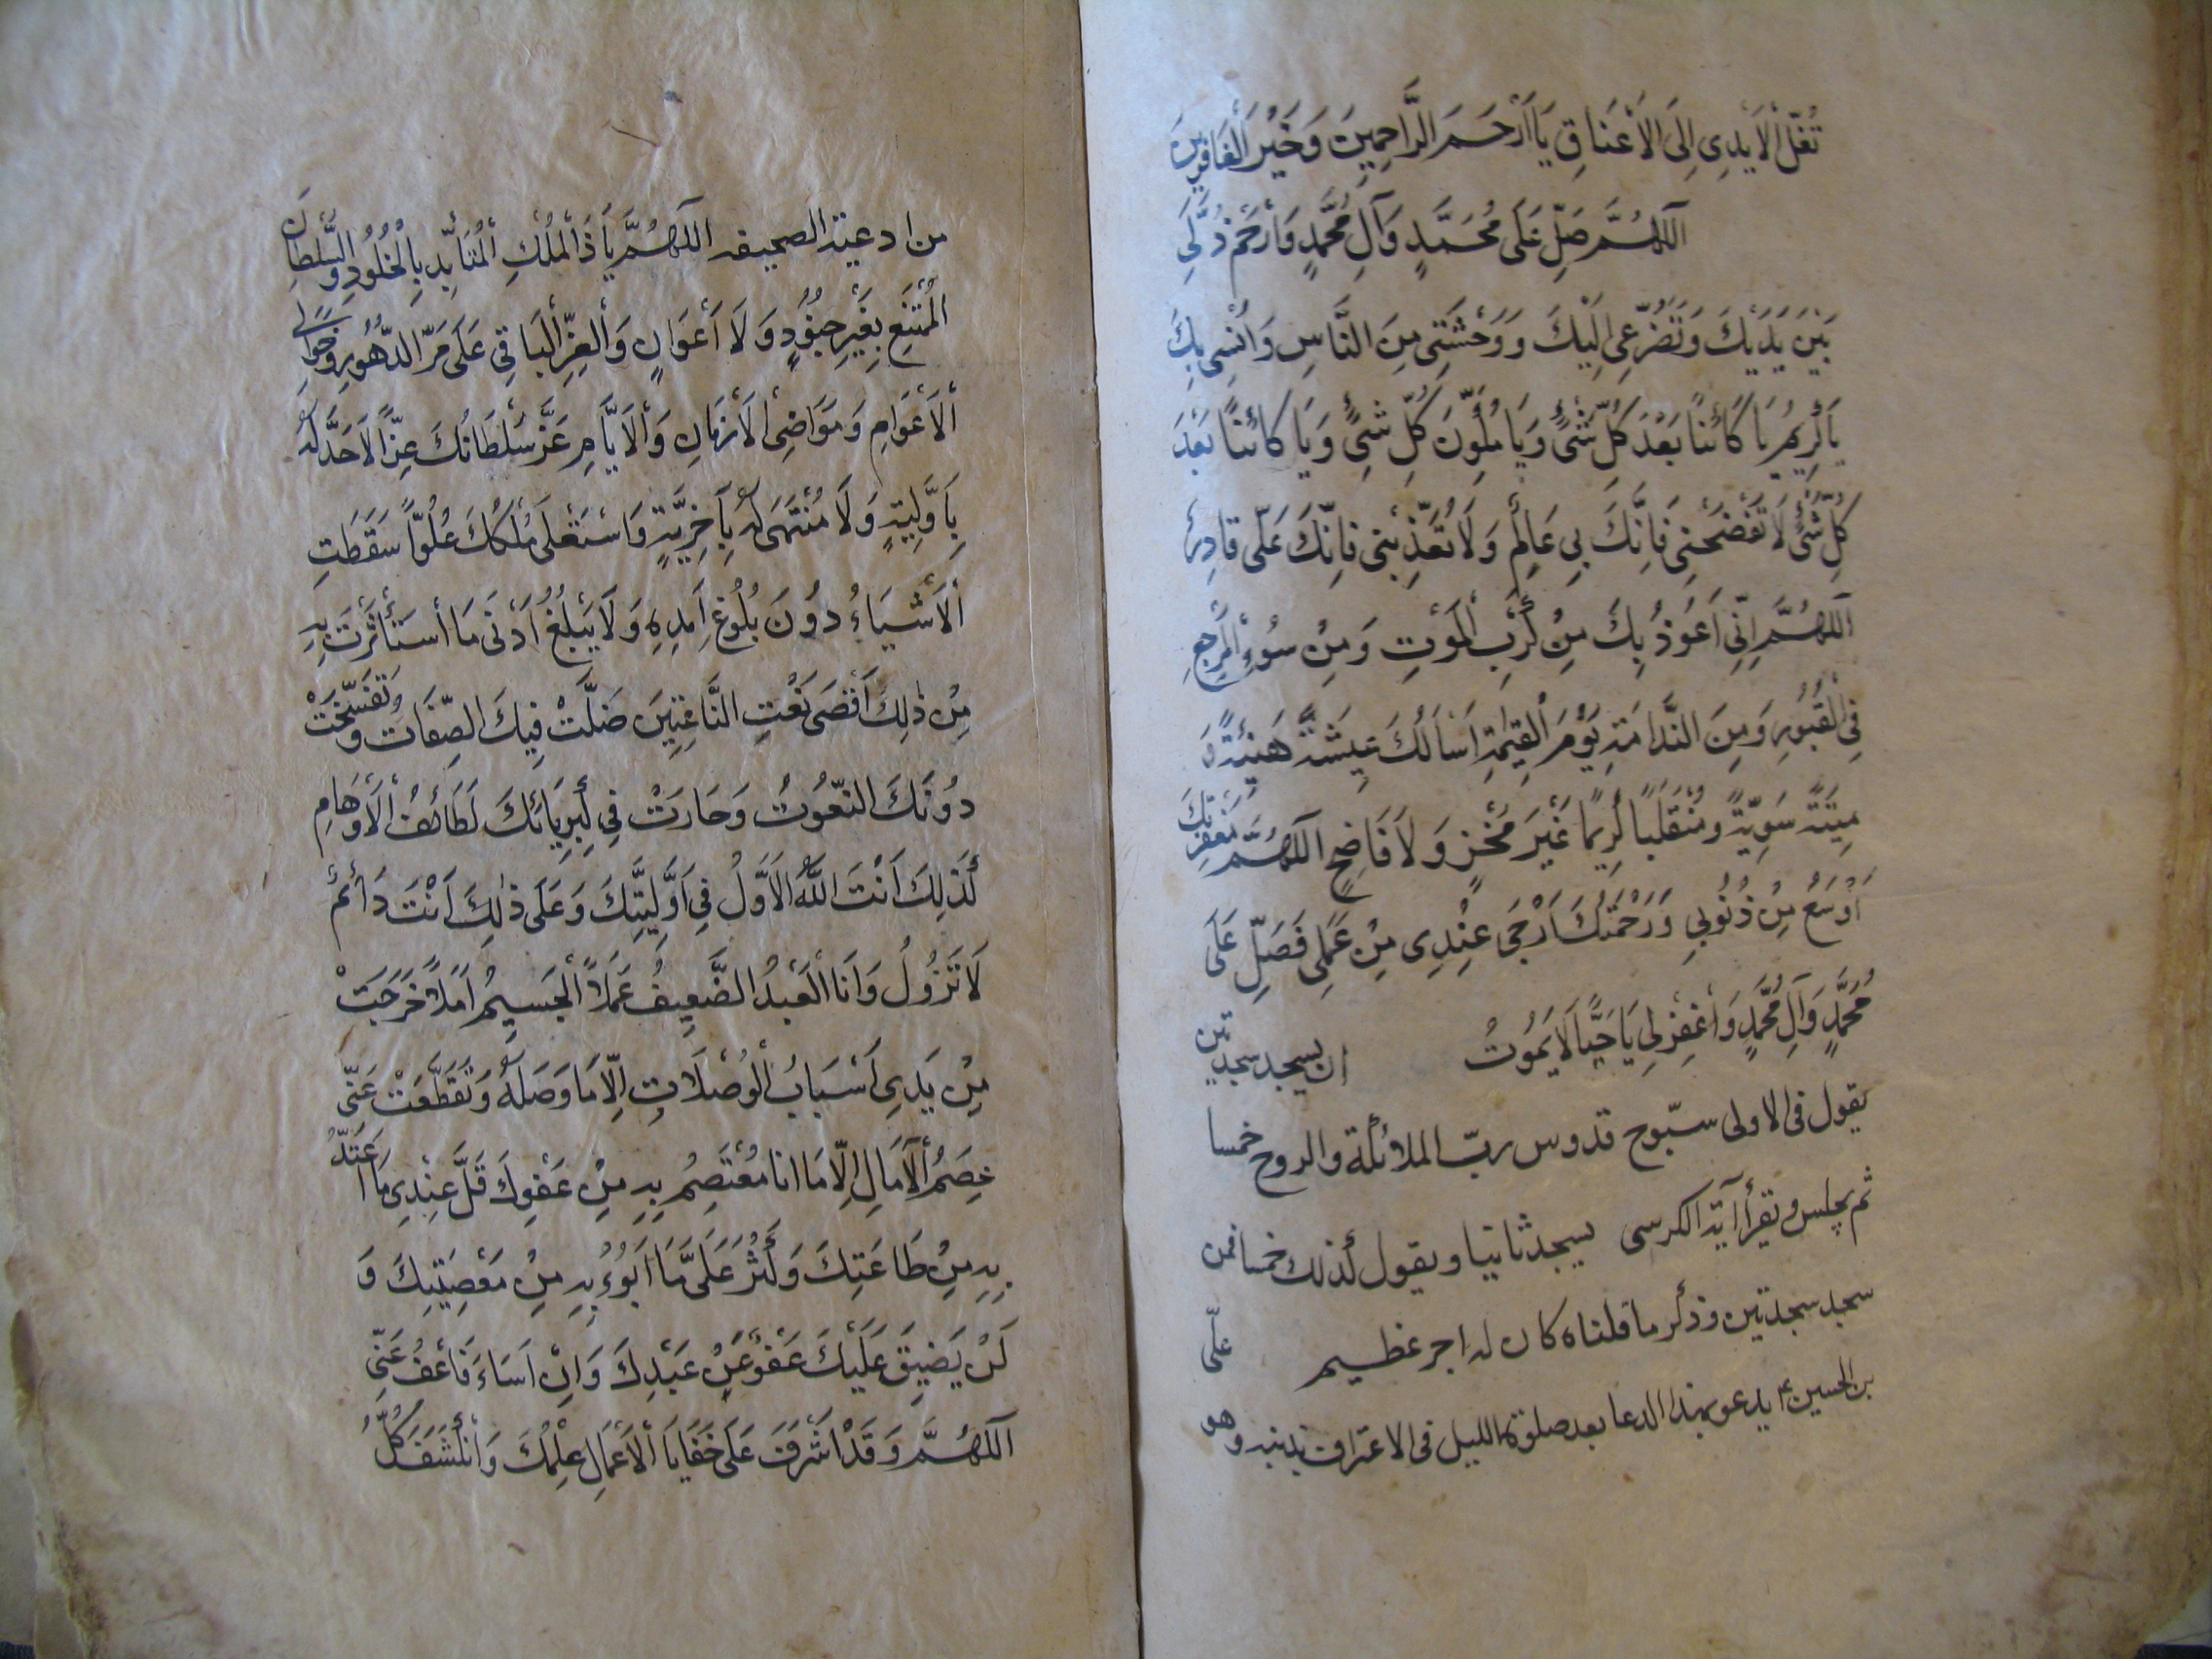 تُغَلَّ الْأَيْدِي إِلَى الْأَعْنَاقِ يَا أَرْحَمَ الرَّاحِمِينَ وَخَيْرَ الْغَافِرِينَ
اَللّٰهُمَّ صَلِّ عَلَى مُحَمَّدٍ وَآلِ مُحَمَّدٍ وَارْحَمْ ذُلِّي
بَيْنَ يَدَيْكَ وَتَضَرُّعِي إِلَيْكَ وَوَحْشَتِي مِنَ النَّاسِ وَأُنْسِي بِكَ
يَا كَرِيمُ يَا كَائِنًا بَعْدَ كُلِّ شَيْءٍ وَيَا مُكَوِّنَ كُلِّ شَيْءٍ وَيَا كَائِنًا بَعْدَ
كُلِّ شَيْءٍ لَا تَفْضَحْنِي فَإِنَّكَ بِي عَالِمٌ وَلَا تُعَذِّبْنِي فَإِنَّكَ عَلَيَّ قَادِرٌ
اَللّٰهُمَّ إِنِّي أَعُوذُ بِكَ مِنْ كَرْبِ الْمَوْتِ وَمِنْ سُوءِ الْمَرْجِعِ
فِي الْقُبُورِ وَمِنَ النَّدَامَةِ يَوْمَ الْقِيٰمَةِ أَسْأَلُكَ عِيشَةً هَنِيئَةً وَ
مِيتَةً سَوِيَّةً وَمُنْقَلَبًا كَرِيمًا غَيْرَ مُخْزٍ وَلَا فَاضِحٍ اَللّٰهُمَّ مَغْفِرَتُكَ
أَوْسَعُ مِنْ ذُنُوبِي وَرَحْمَتُكَ أَرْجَى عِنْدِي مِنْ عَمَلِي فَصَلِّ عَلَى
مُحَمَّدٍ وَآلِ مُحَمَّدٍ وَاغْفِرْ لِي يَا حَيًّا لَا يَمُوتُ ان يسجد سجدتين
يقول فى الاولى سبّوح قدوس ربّ الملائكة والروح خمسا
ثم يجلس ويقرأ آية الكرسى يسجد ثانيا ويقول كذلك خمسا فمن
سجد سجدتين وذكر ما قلناه كان له اجر عظيم علّى
بن الحسين ع يدعو بهذا الدعا بعد صلوة الليل فى الاعتراف بذنبه وهو
من ادعية الصحيفه اَللّٰهُمَّ يَا ذَا الْمُلْكِ الْمُتَأَبِّدِ بِالْخُلُودِ وَالسُّلْطَانِ
الْمُمْتَنِعِ بِغَيْرِ جُنُودٍ وَلَا أَعْوَانٍ وَالْعِزِّ الْبَاقِي عَلَى مَرِّ الدُّهُورِ وَخَوَالِي
الْأَعْوَامِ وَمَوَاضِي الْأَزْمَانِ وَالْأَيَّامِ عَزَّ سُلْطَانُكَ عِزًّا لَا حَدَّ لَهُ
بِأَوَّلِيَّةٍ وَلَا مُنْتَهَى لَهُ بِآخِرِيَّةٍ وَاسْتَعْلَى مُلْكُكَ عُلُوًّا سَقَطَتِ
الْأَشْيَاءُ دُونَ بُلُوغِ أَمَدِهِ وَلَا يَبْلُغُ أَدْنَى مَا اسْتَأْثَرْتَ بِهِ
مِنْ ذٰلِكَ أَقْصَى نَعْتِ النَّاعِتِينَ ضَلَّتْ فِيكَ الصِّفَاتُ وَتَفَسَّخَتْ
دُونَكَ النُّعُوتُ وَحَارَتْ فِي كِبْرِيَائِكَ لَطَائِفُ الْأَوْهَامِ
كَذٰلِكَ أَنْتَ اللّٰهُ الْأَوَّلُ فِي أَوَّلِيَّتِكَ وَعَلَى ذٰلِكَ أَنْتَ دَائِمٌ
لَا تَزُولُ وَأَنَا الْعَبْدُ الضَّعِيفُ عَمَلًا الْجَسِيمُ أَمَلًا خَرَجَتْ
مِنْ يَدِي أَسْبَابُ الْوُصْلَاتِ إِلَّا مَا وَصَلَهُ وَتَقَطَّعَتْ عَنِّي
عِصَمُ الْآمَالِ إِلَّا مَا أَنَا مُعْتَصِمٌ بِهِ مِنْ عَفْوِكَ قَلَّ عِنْدِي مَا أَعْتَدُّ
بِهِ مِنْ طَاعَتِكَ وَكَثُرَ عَلَيَّ مَا أَبُوءُ بِهِ مِنْ مَعْصِيَتِكَ وَ
لَنْ يَضِيقَ عَلَيْكَ عَفْوٌ عَنْ عَبْدِكَ وَإِنْ أَسَاءَ فَاعْفُ عَنِّي
اَللّٰهُمَّ وَقَدْ أَشْرَفَ عَلَى خَفَايَا الْأَعْمَالِ عِلْمُكَ وَانْكَشَفَ كُلُّ